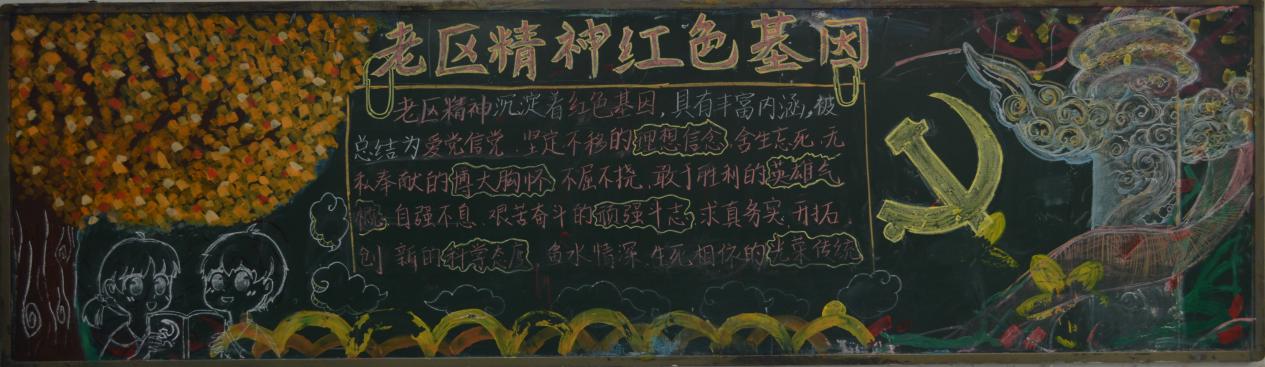 老区精神红色基因
老区精神沉淀着红色基因，具有丰富内涵，被
总结为爱党信党、坚定不移的理想信念、舍生忘死、无
私奉献的博大胸怀、不屈不挠、敢于胜利的英雄气
概、自强不息、艰苦奋斗的顽强斗志、求真务实、开拓
创新的科学态度、鱼水情深、生死相依的光荣传统